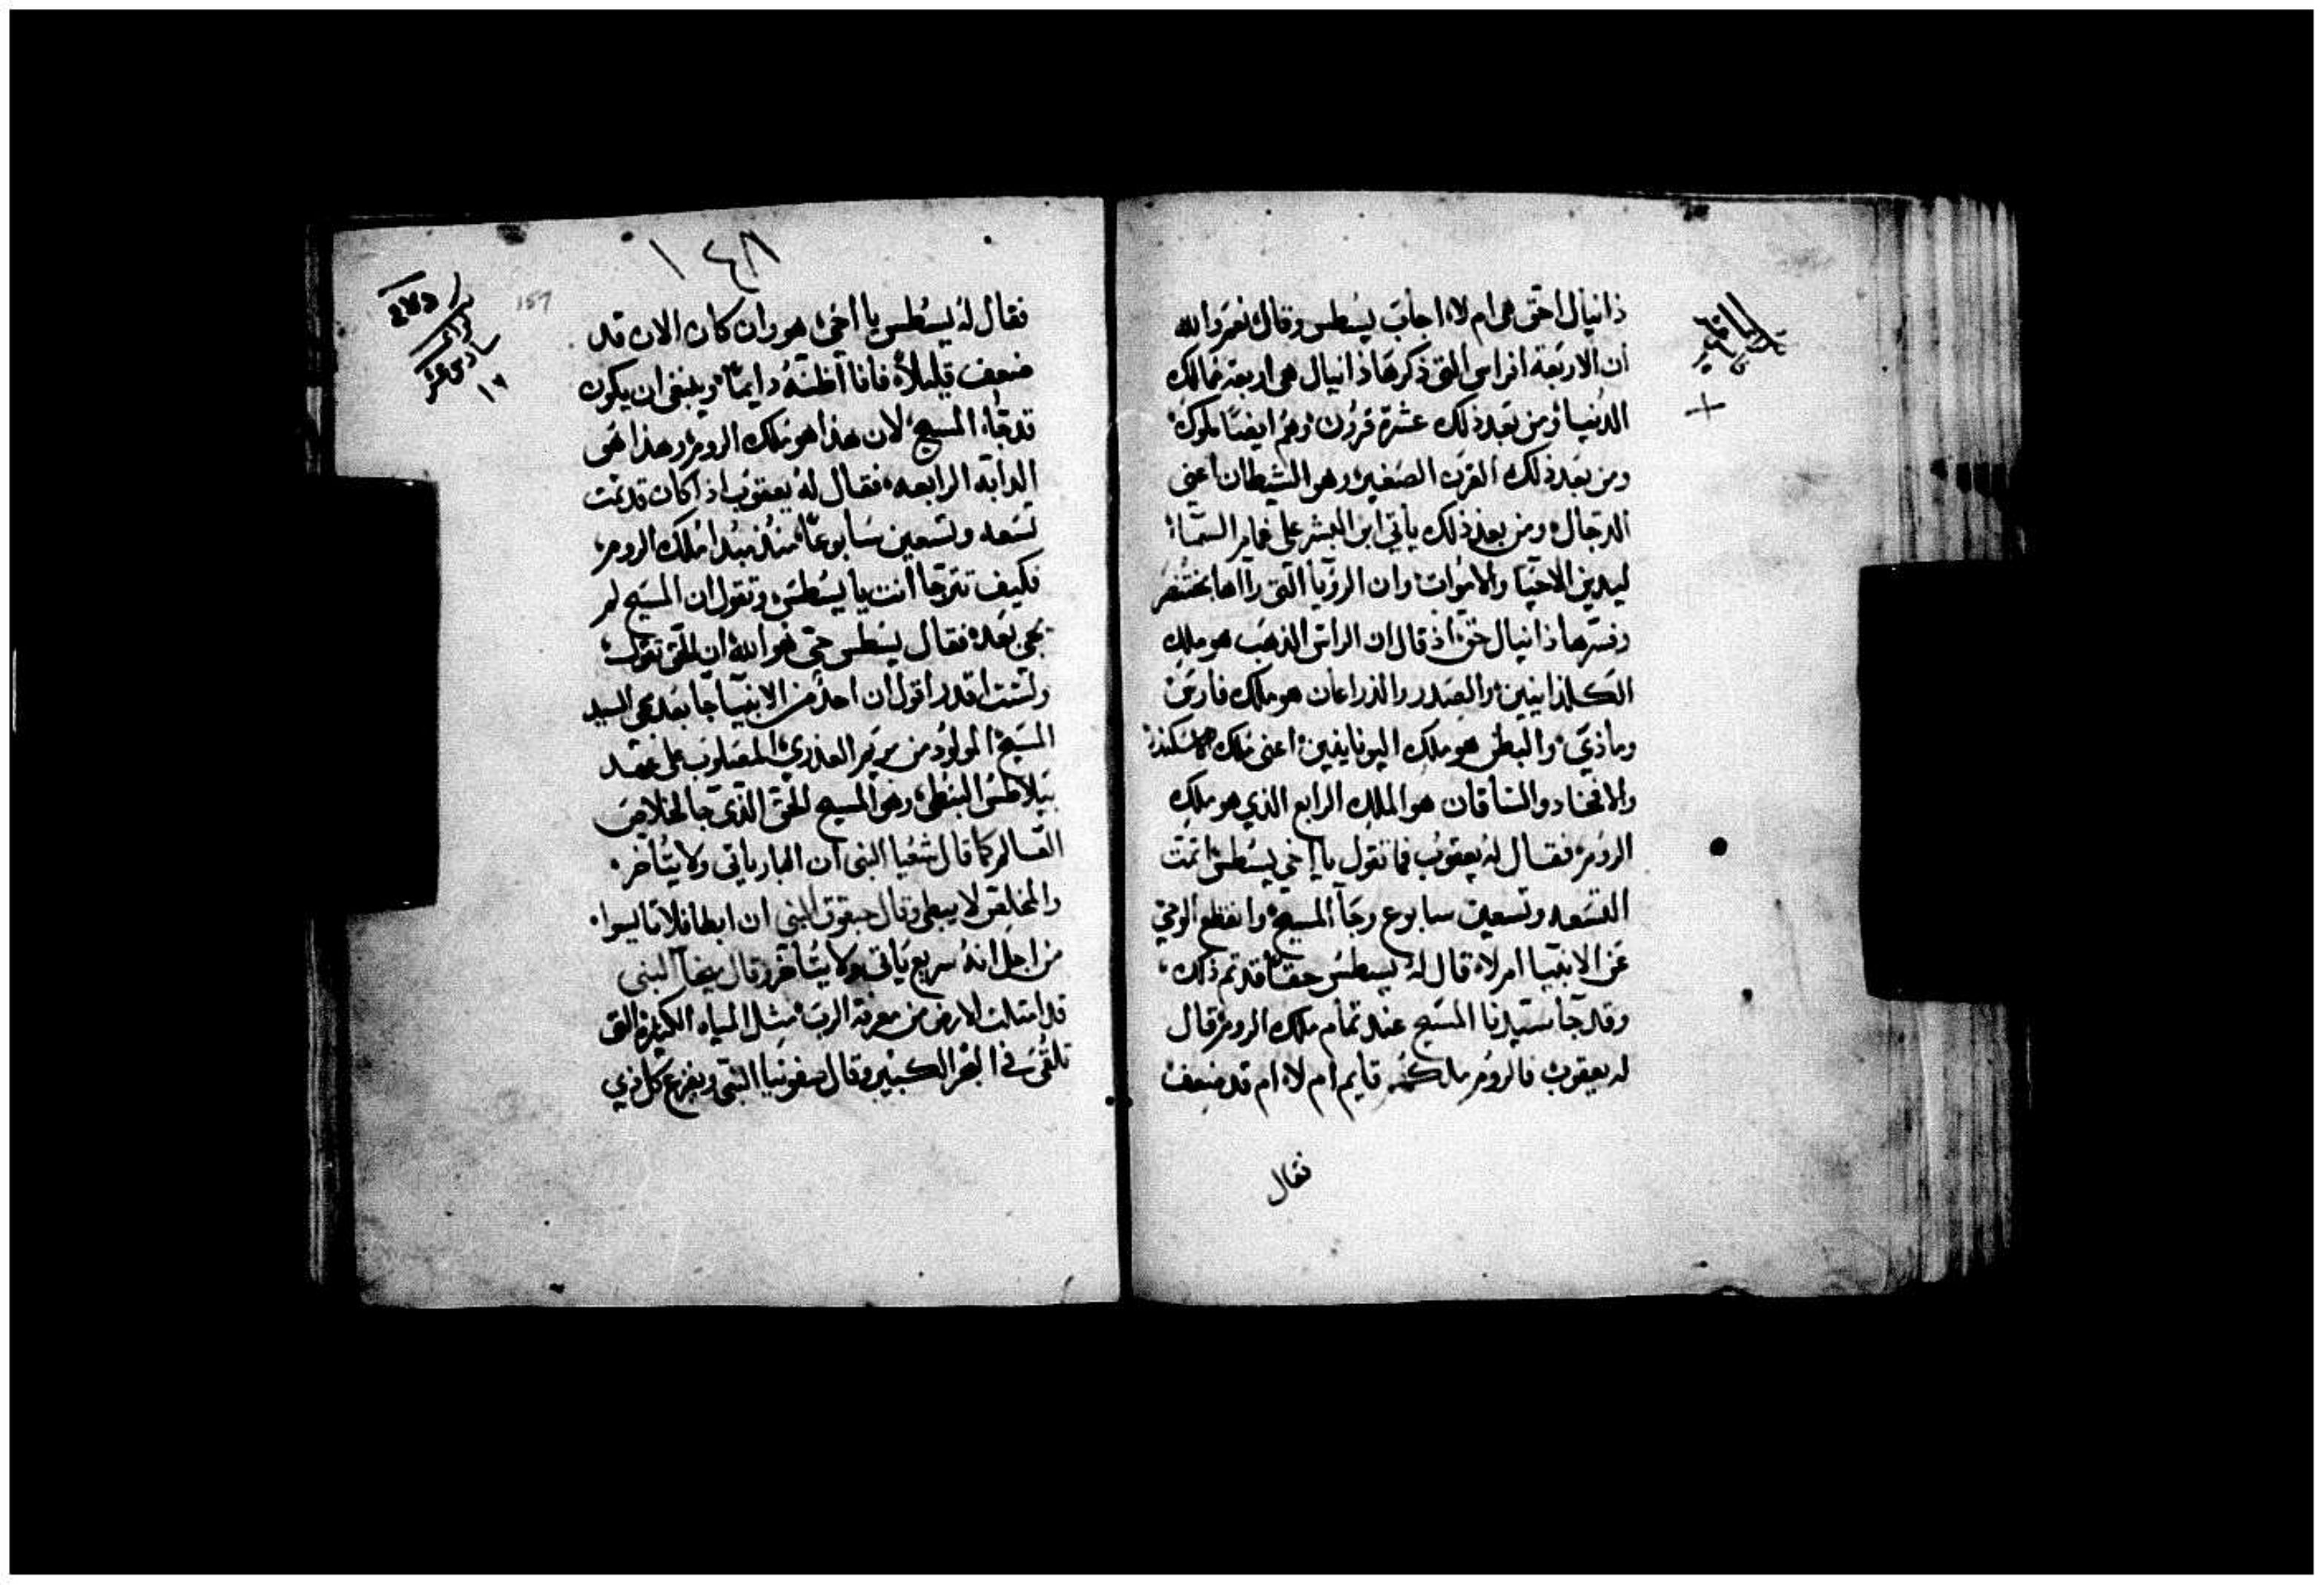 ذانيال احق هي ام لا، اجاب يسطس وقال نعم والله
ان الاربعة افراس التى ذكرها ذانيال هى اربعة ممالك
الدنيا ومن بعد ذلك عشرة قرون وهم ايضًا ملوك
ومن بعد ذلك القرن الصغير وهو الشيطان اعني
الدجال ومن بعد ذلك ياتي ابن البشر على غمام السماء
ليدين الاحيا والاموات وان الرويا التى رااها بختنصر
وفسرها ذانيال حق اذ قال ان الراس الذهب هو ملك
الكلدانيين والصدر والذراعان هو ملك فارس
وماذي والبطن هو ملك اليونانيين اعنى ملك
والافخاد والساقان هو الملك الرابع الذي هو ملك
الروم فقال له يعقوب فما تقول يا اخي يسطس اتمت
التسعه وتسعين سابوع وجآ المسيح وانقطع الوحي
عن الانبيا ام لا قال له يسطس حقًا قد تم ذلك
وقد جآ سيدنا المسيح عند تمام ملك الروم قال
له يعقوب فالروم ملكهم قايم ام لا ام قد ضعف
فقال
١٤٨
157
١٦
فقال له يسطس يا اخى هو وان كان الان قد
ضعف قليلاً فانا اظنه دايمًا وينبغى ان يكون
قد جاء المسيح لان هذا هو ملك الروم وهذا هى
الدابه الرابعه فقال له يعقوب اذا كان قد تمت
تسعه وتسعين سابوعًا منذ مبدا ملك الروم
فكيف تترجا انت يا يسطس وتقول ان المسيح لم
يجى بعد فقال يسطس حى هو الله ان الحق تقول
ولست اقدر اقول ان احد من الانبيا جا بعد مجى السيد
المسيح المولود من مريم العذري المصلوب على عهد
بيلاطس البنطى وهو المسيح الحق الذى جا لخلاص
العالم كما قال شعيا النبى ان البار ياتى ولا يتاخر
والمخلص لا يبطى وقال حبقوق النبى ان ابطا فلا تاليسوا
من اجل انه سريع ياتى ولا يتاخر وقال النبى
قد امتلت الارض من معرفة الرب مثل المياه الكثيرة التى
تلقى في البحر الكبير وقال صفونيا النبى ويفزع كل ذي